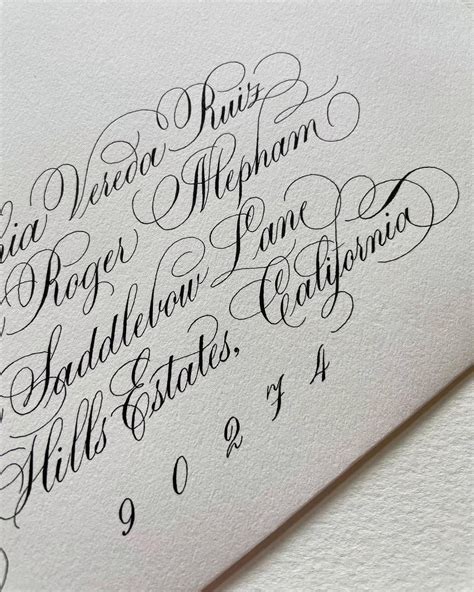 nia Vereda Ruiz
Roger Mepham
Saddlebow Lane
Hills Estates, California
90274